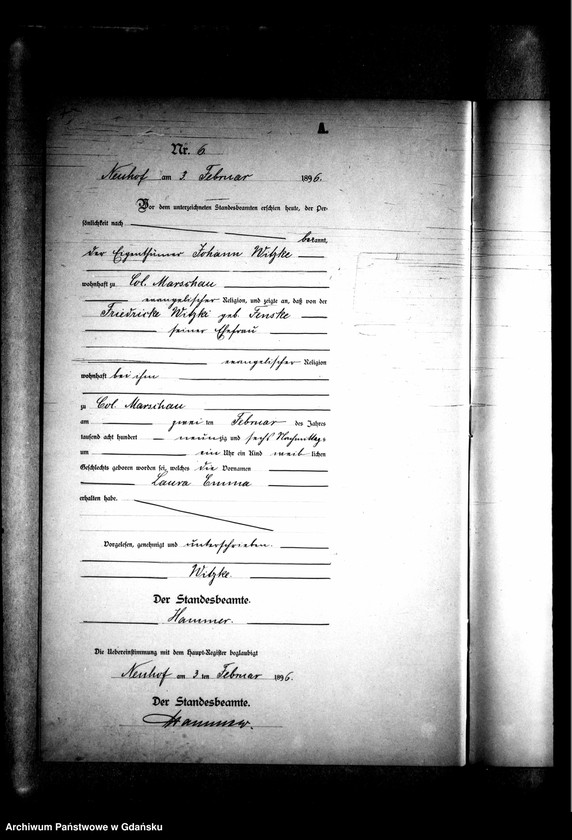 A.
Nr. 6
Neuhof am 3. Februar 1896.
Vor dem unterzeichneten Standesbeamten erschien heute, der Per-
sönlichkeit nach
bekannt,
der Eigenthümer Johann Witzke
wohnhaft zu Col. Marschau
evangelischer Religion, und zeigte an, daß von der
Friedricke Witzki geb. Fenske
seiner Ehefrau
evangelischer Religion
wohnhaft bei ihm
zu Col. Marschau
am zwei ten Februar des Jahres
tausend acht hundert neunzig und sechs Nachmittags
um ein Uhr ein Kind weib lichen
Geschlechts geboren worden sei, welches die Vornamen
Laura Emma
erhalten habe.
Vorgelesen, genehmigt und unterschrieben.
Witzke.
Der Standesbeamte.
Hammer.
Die Uebereinstimmung mit dem Haupt-Register beglaubigt
Neuhof am 3 ten Februar 1896.
Der Standesbeamte.
Hammer.
Archiwum Państwowe w Gdańsku